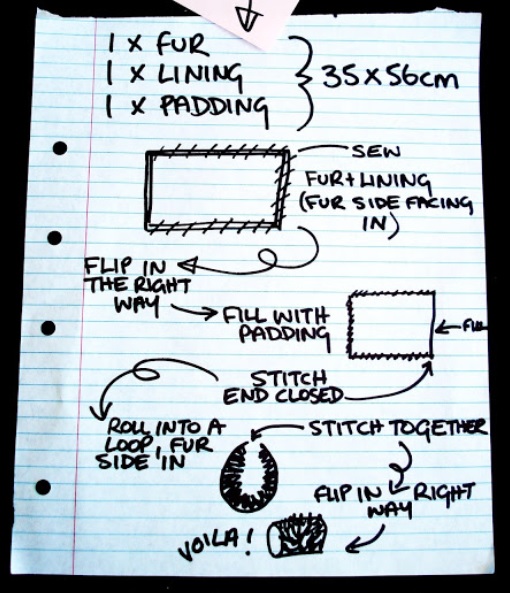 1 X FUR
1 X LINING
1 X PADDING
35 X 56cm
SEW
FUR + LINING
(FUR SIDE FACING
IN)
FLIP IN
THE RIGHT
WAY
FILL WITH
PADDING
FILL
STITCH
END CLOSED
ROLL INTO A
LOOP, FUR
SIDE IN
STITCH TOGETHER
FLIP IN RIGHT
WAY
VOILA!